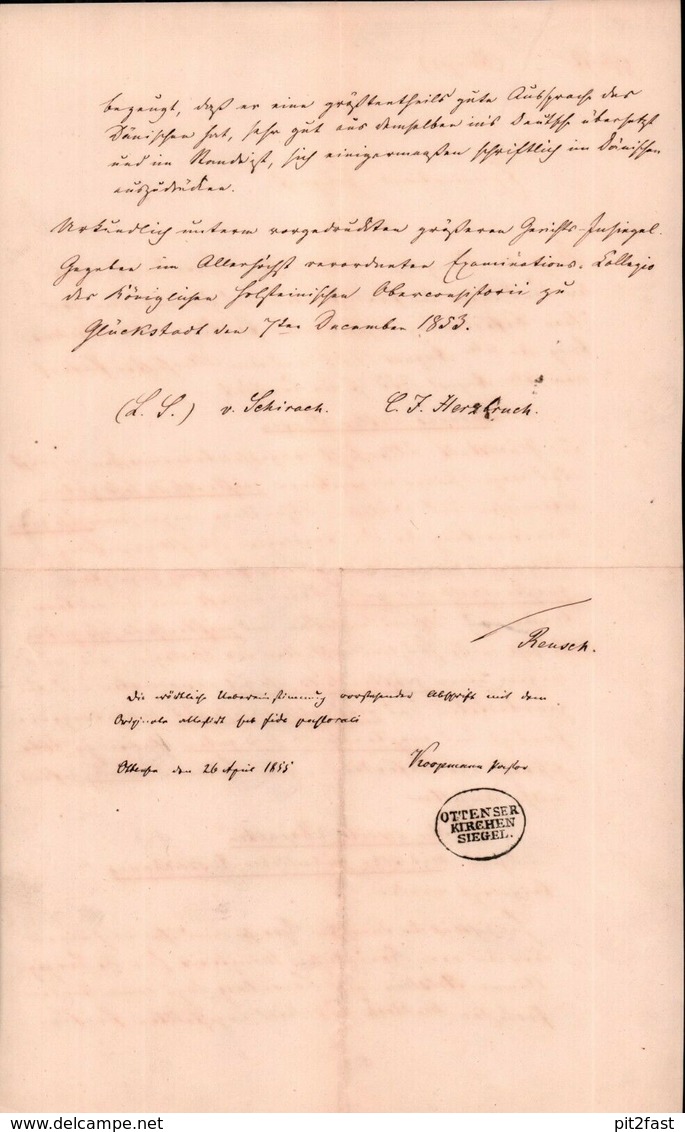 bezeugt, daß er eine größtentheils gute Aussprache des
Dänischen hat, sehr gut aus demselben ins Deutsche übersetzt
und im Stande ist, sich einigermaaßen schriftlich im Dänischen
auszudrücken.
Urkundlich unterm vorgedruckten größeren Gerichts-Insiegel.
Gegeben im Allerhöchst verordneten Examinations-Collegio
des Königlichen Holsteinischen Oberconsistorii zu
Glückstadt den 7ten December 1853.
(L. S.) v. Schirach. C. F. Herzbruch.
Rensch.
Die wörtliche Uebereinstimmung vorstehender Abschrift mit dem
Originale attestirt sub fide pastorali
Ottensen den 26 April 1855 Koopmann Pastor
OTTENSER
KIRCHEN
SIEGEL.
delcampe.net
pit2fast